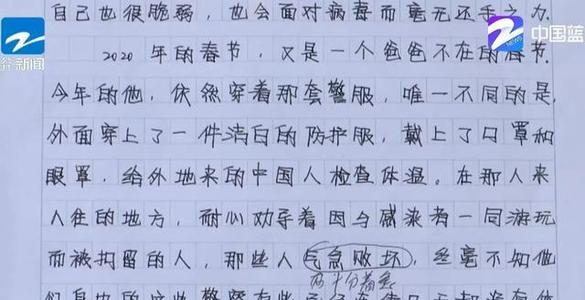 自己也很脆弱，也会面对病毒而毫无还手之力
新闻
中国蓝
2020年的春节，又是一个爸爸不在的春节.
今年的他，依然穿着那套警服，唯一不同的是，
外面穿上了一件洁白的防护服，戴上了口罩和
眼罩，给外地来的中国人检查体温。在那人来
人往的地方，耐心劝导着因与感染者一同游玩
而被拘留的人，那些人气急败坏，丝毫不知他
十分着急